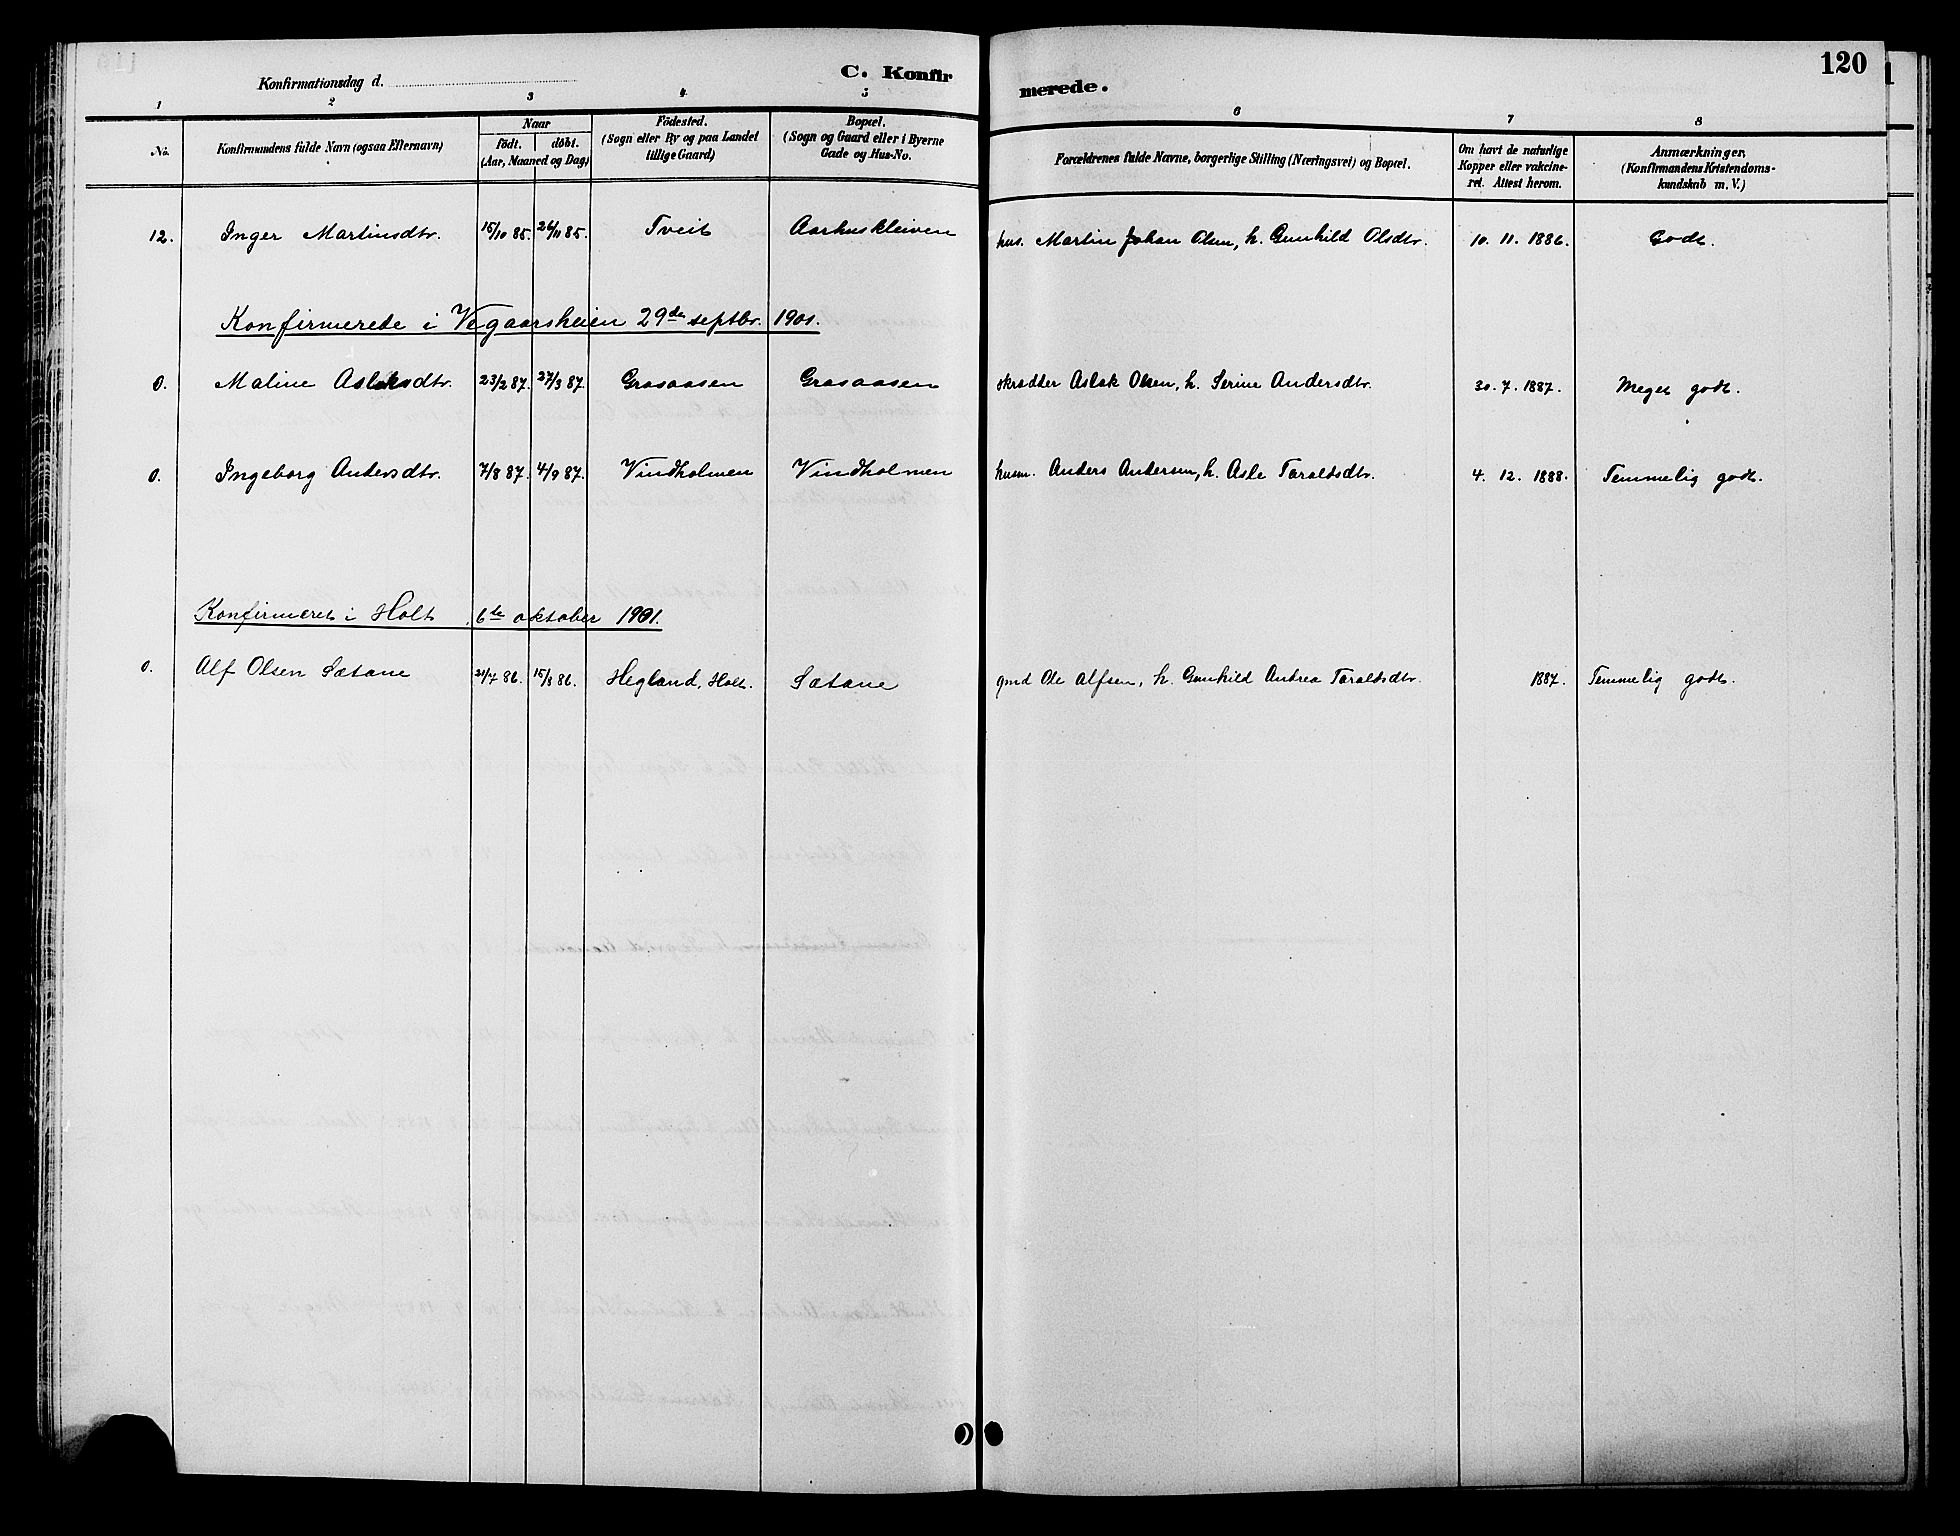 120
C. Konfirmerede.
Konfirmationsdag d.
1 2 3 4 5 6 7 8
No. Konfirmandens fulde Navn (ogsaa Efternavn) Naar født. døbt. (Aar, Maaned og Dag) Fødested. (Sogn eller By og paa Landet tillige Gaard) Bopæl. (Sogn og Gaard eller i Byerne Gade og Hus-No. Forældrenes fulde Navne, borgerlige Stilling (Næringsvei) og Bopæl. Om havt de naturlige Kopper eller vakcineret. Attest herom. Anmærkninger, (Konfirmandens Kristendomskundskab m. V.)
12. Inger Martinsdtr. 15/10 85. 26/11 85. Tveit Aarhuskleiven hus. Martin Johan Olsen, h. Gunhild Olsdtr. 10. 11. 1886. Godt.
Konfirmerede i Vegaarsheien 29de septbr. 1901.
0. Maline Aslaksdtr. 23/2 87. 27/3 87. Grasaasen Grasaasen skrædder Aslak Olsen, h. Serine Andersdtr. 30. 7. 1887. Meget godt.
0. Ingeborg Andersdtr. 7/8 87. 4/9 87. Vindholmen Vindholmen husm. Anders Andersen, h. Asle Taraldsdtr. 4. 12. 1888. Temmelig godt.
Konfirmeret i Holt 6te oktober 1901.
0. Alf Olsen Sætane /7 86. 15/8 86. Hegland, Holt. Sætane gmd Ole Alfsen, h. Gunhild Andrea Taraldsdtr. 1887. Temmelig godt.